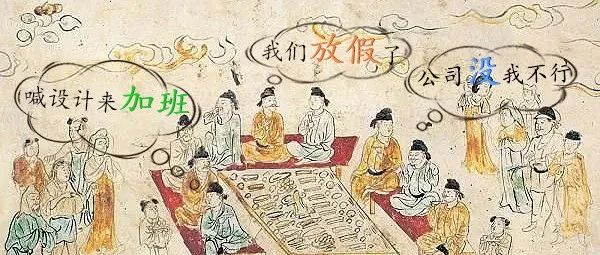 喊设计来加班
我们放假了
公司没我不行